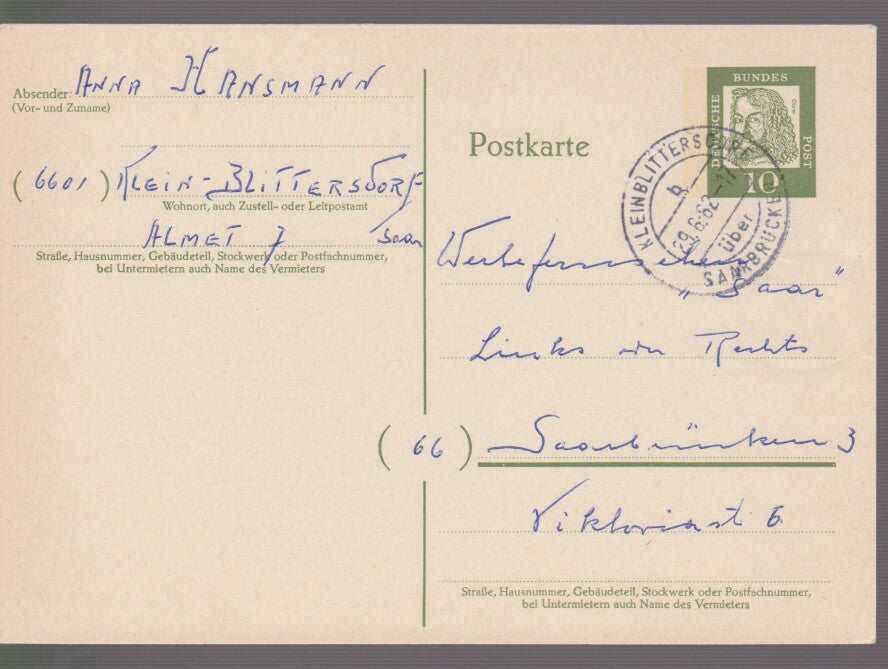 Absender: ANNA HANSMANN
(Vor- und Zuname)
(6601) KLEIN-BLITTERSDORF
Wohnort, auch Zustell- oder Leitpostamt
ALMET 7 Saar
Straße, Hausnummer, Gebäudeteil, Stockwerk oder Postfachnummer,
bei Untermietern auch Name des Vermieters
Postkarte
DEUTSCHE BUNDES POST
Dürer
10
KLEINBLITTERSDORF
b
29.6.62.-17
über
SAARBRÜCKEN
Werbefernsehen
"Saar"
Links oder Rechts
(66) Saarbrücken 3
Viktoriast 6
Straße, Hausnummer, Gebäudeteil, Stockwerk oder Postfachnummer,
bei Untermietern auch Name des Vermieters